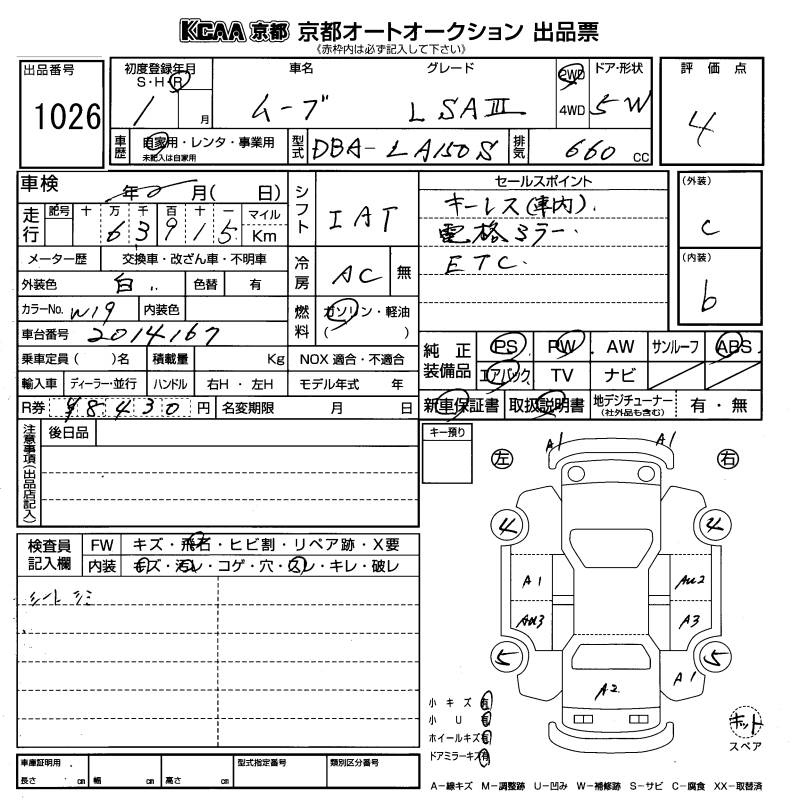 KCAA 京都 京都オートオークション 出品票
《赤枠内は必ず記入して下さい》
出品番号
1026
初度登録年月
S・H・R
1 月
車名
ムーブ
グレード
L SAⅢ
2WD
4WD
ドア・形状
5W
評価点
4
車歴
自家用・レンタ・事業用
未記入は自家用
型式
DBA-LA150S
排気
660 cc
車検
年 月( 日)
走行
記号 十 万 千 百 十 一 マイル
6 3 9 1 5 Km
シフト
IAT
セールスポイント
キーレス(車内).
電格ミラー.
ETC.
(外装)
c
(内装)
b
メーター歴 交換車・改ざん車・不明車
外装色 白.. 色替 有
冷房
AC 無
カラーNo. W19 内装色
燃料
ガソリン・軽油
( )
車台番号 2014167
乗車定員( )名 積載量 Kg NOX 適合・不適合
輸入車 ディーラー・並行 ハンドル 右H・左H モデル年式 年
R券 ¥8430 円 名変期限 月 日
純正装備品
PS PW AW サンルーフ ABS
エアバック TV ナビ
新車保証書 取扱説明書 地デジチューナー (社外品も含む) 有・無
注意事項(出品店記入)
後日品
キー預り
左 右
A1 A1
4 4
A1 AU2
AU3 A3
5 5
A2 A1
検査員記入欄
FW キズ・飛石・ヒビ割・リペア跡・X要
内装 キズ・汚レ・コゲ・穴・スレ・キレ・破レ
シートシミ
小キズ 有
小U 有
ホイールキズ 有
ドアミラーキズ 有
キット
スペア
車庫証明用
長さ cm 幅 cm 高さ cm
型式指定番号
類別区分番号
A-線キズ M-調整跡 U-凹み W-補修跡 S-サビ C-腐食 XX-取替済